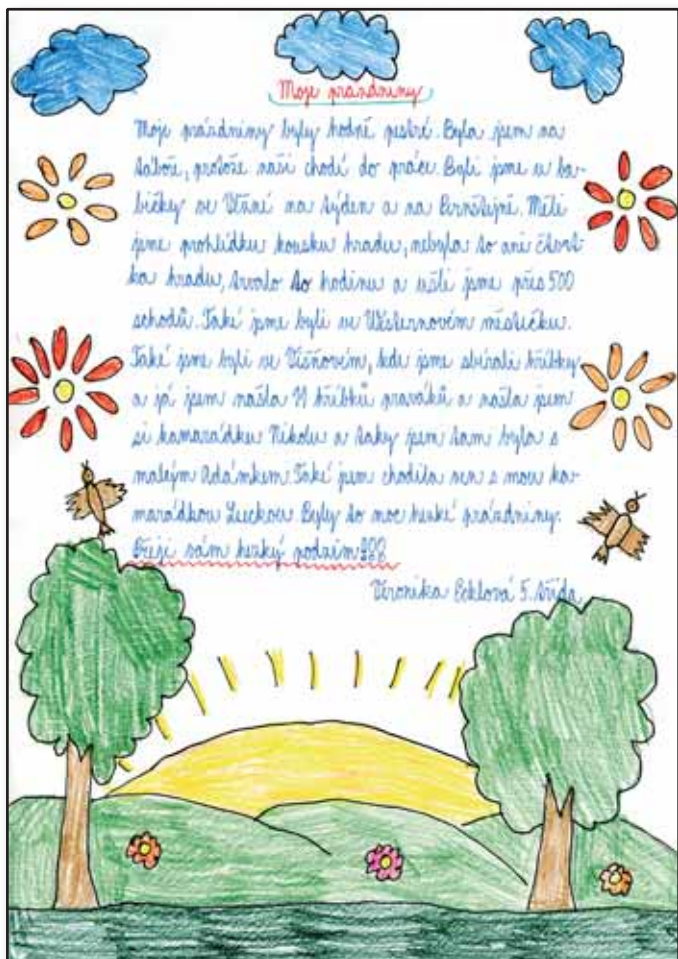 Moje prázdniny
Moje prázdniny byly hodně pestré. Byla jsem na
táboře, protože naši chodí do práce. Byli jsme u ba-
bičky ve na týden a na Pernštejně. Měli
jsme prohlídku kousku hradu, nebyla to ani čtvrt-
ka hradu, trvalo to hodinu a ušli jsme přes 500
schodů. Také jsme byli ve Westernovém městečku.
Také jsme byli ve Višňovém, kde jsme sbírali hříbky
a já jsem našla hříbků praváků a našla jsem
si kamarádku Nikolu a taky jsem tam byla s
malým Adámkem. Také jsem chodila ven s mou ka-
marádkou Luckou. Byly to moc hezké prázdniny.
Přeji vám hezký podzim!!!
Veronika Ecklová 5. třída